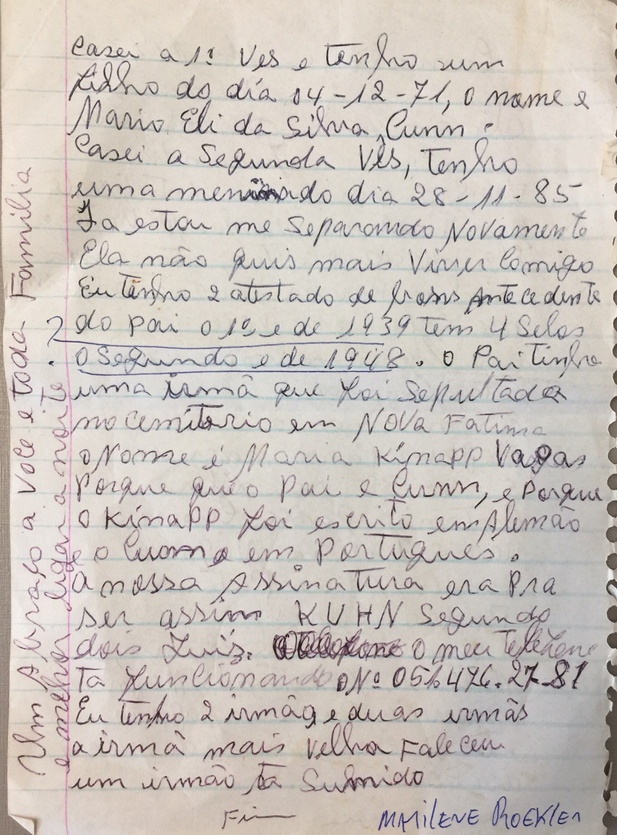 casei a 1ª Ves e tenho um
filho do dia 04-12-71, o nome e
Mario Eli da Silva Cunn.
Casei a Segunda Ves, tenho
uma menina do dia 28-11-85
Ja estou me Separando Novamente
Ela não quis mais Viver Comigo
Eu tenho 2 atestado de bons Antecedente
? do pai o 1º e de 1939 tem 4 Selos
. o Segundo e de 1948. o Pai tinha
uma irmã que foi Sepultada
no cemiterio em NOVA Fatima
o Nome é Maria Kinapp Vagas
Porque que o Pai e Cunn, e Porque
o Kinapp foi escrito em Alemão
e o Cunn e em Portugues.
A nossa Assinatura era Pra
ser assim KUHN Segundo
dois Juiz. o meu telefone
Ta funcionando o Nº 051476.27-81
Eu tenho 2 irmão e duas irmãs
a irmã mais Velha Faleceu
um irmão ta Sumido
Fim
MARILENE ROEKLER
Um Abraço a Voce e toda Familia
e melhor ligar a noite